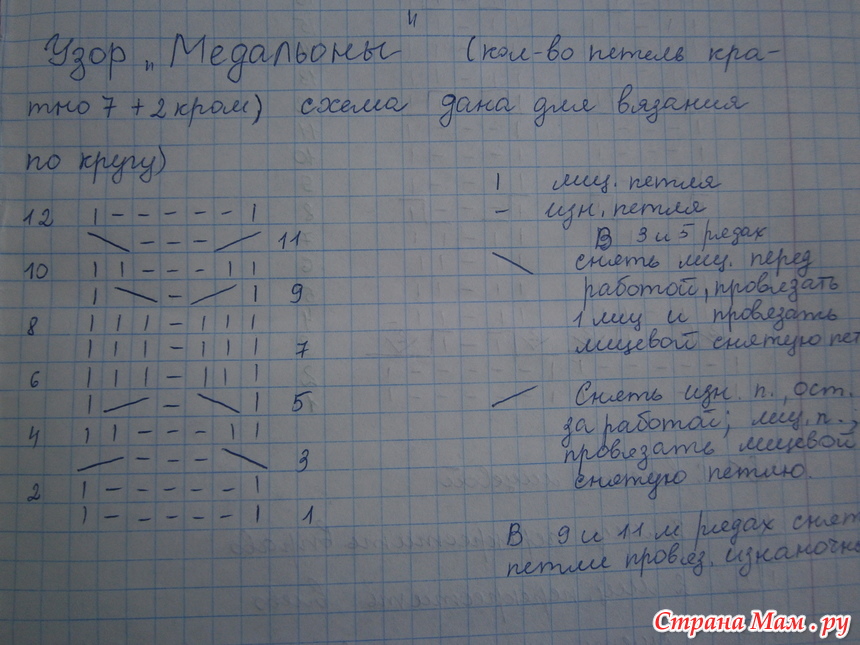 Узор „Медальоны" (кол-во петель кра-
тно 7 + 2 кром) схема дана для вязания
по кругу)
12 | - - - - - |
\ - - - / 11
10 | | - - - | |
| \ - / | 9
8 | | | - | | |
| | | - | | | 7
6 | | | - | | |
| / - \ | 5
4 | | - - - | |
/ - - - \ 3
2 | - - - - - |
| - - - - - | 1
| лиц. петля
- изн. петля
В 3 и 5 рядах
\ снять лиц. перед
работой, провязать
1 лиц и провязать
лицевой снятую пет
/ Снять изн. п., ост.
за работой; лиц. п.,
провязать лицевой
снятую петлю.
В 9 и 11 м рядах снят
петли провяз. изнаночн
Страна Мам.ру